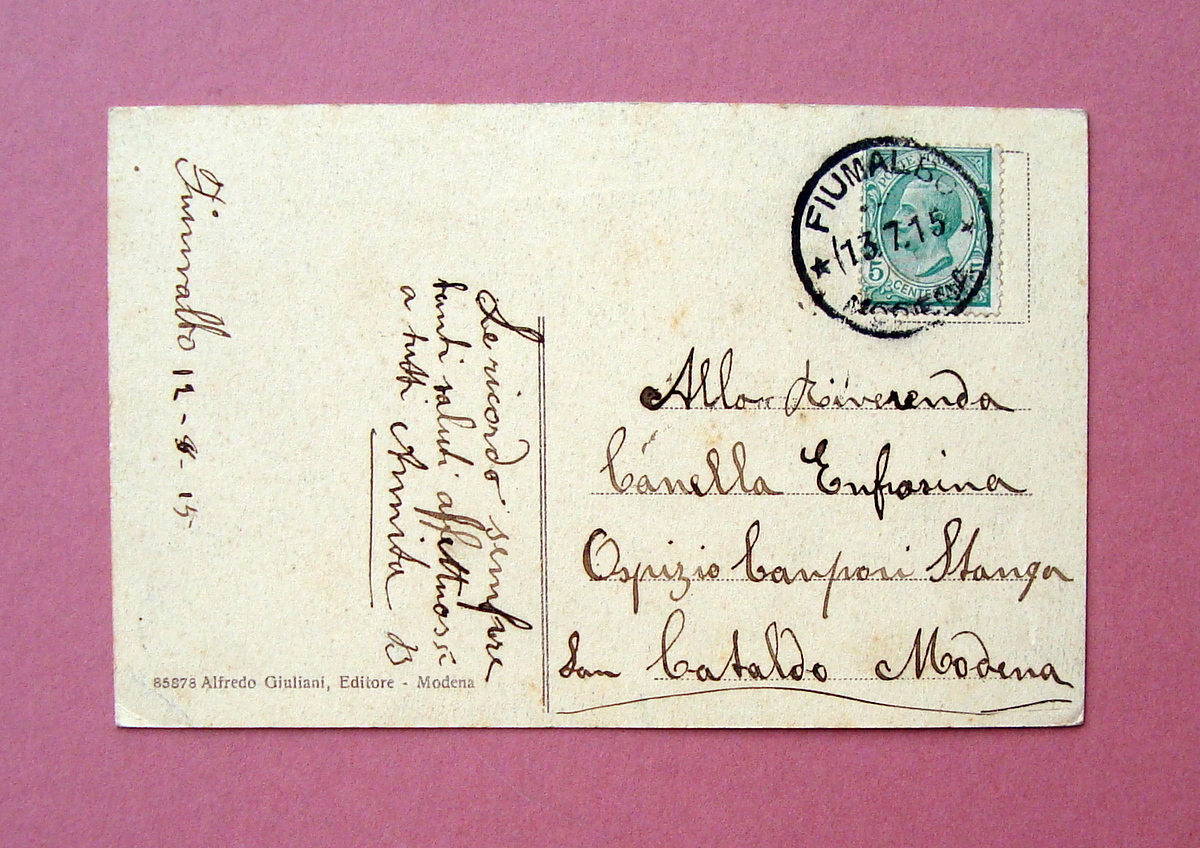 Fiumalbo 12-8-15
Le ricordo sempre
tanti saluti affettuossi
a tutti Annita B
85878 Alfredo Giuliani, Editore - Modena
FIUMALBO
13.7.15
MODENA
5
CENTESIMI
Alla Riverenda
Canella Enfrosina
Ospizio Canpori Stanga
San Cataldo Modena